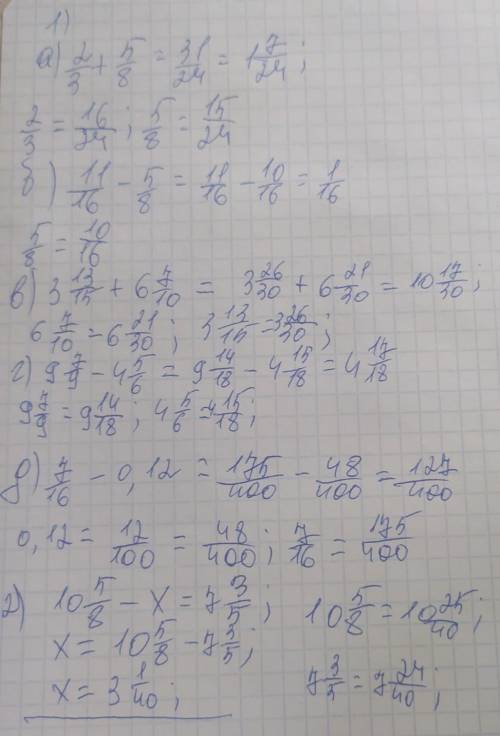 1)
а) 2/3 + 5/8 = 31/24 = 1 7/24;
2/3 = 16/24; 5/8 = 15/24
б) 11/16 - 5/8 = 11/16 - 10/16 = 1/16
5/8 = 10/16
в) 3 13/15 + 6 7/10 = 3 26/30 + 6 21/30 = 10 17/30;
6 7/10 = 6 21/30; 3 13/15 = 3 26/30;
г) 9 7/9 - 4 5/6 = 9 14/18 - 4 15/18 = 4 17/18
9 7/9 = 9 14/18; 4 5/6 = 4 15/18;
д) 7/16 - 0,12 = 175/400 - 48/400 = 127/400
0,12 = 12/100 = 48/400; 7/16 = 175/400
2) 10 5/8 - х = 7 3/5; 10 5/8 = 10 25/40;
х = 10 5/8 - 7 3/5;
х = 3 1/40; 7 3/5 = 7 24/40;